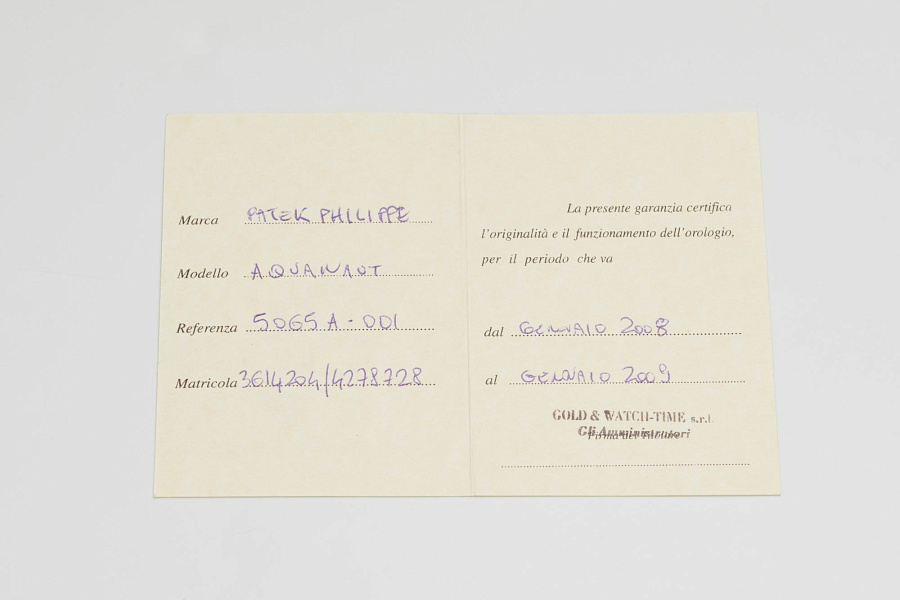 Marca PATEK PHILIPPE
Modello AQUANAUT
Referenza 5065 A - 001
Matricola 3614204/4278728
La presente garanzia certifica
l'originalità e il funzionamento dell'orologio,
per il periodo che va
dal GENNAIO 2008
al GENNAIO 2009
GOLD & WATCH-TIME s.r.l.
Gli Amministratori
Firma del Titolare